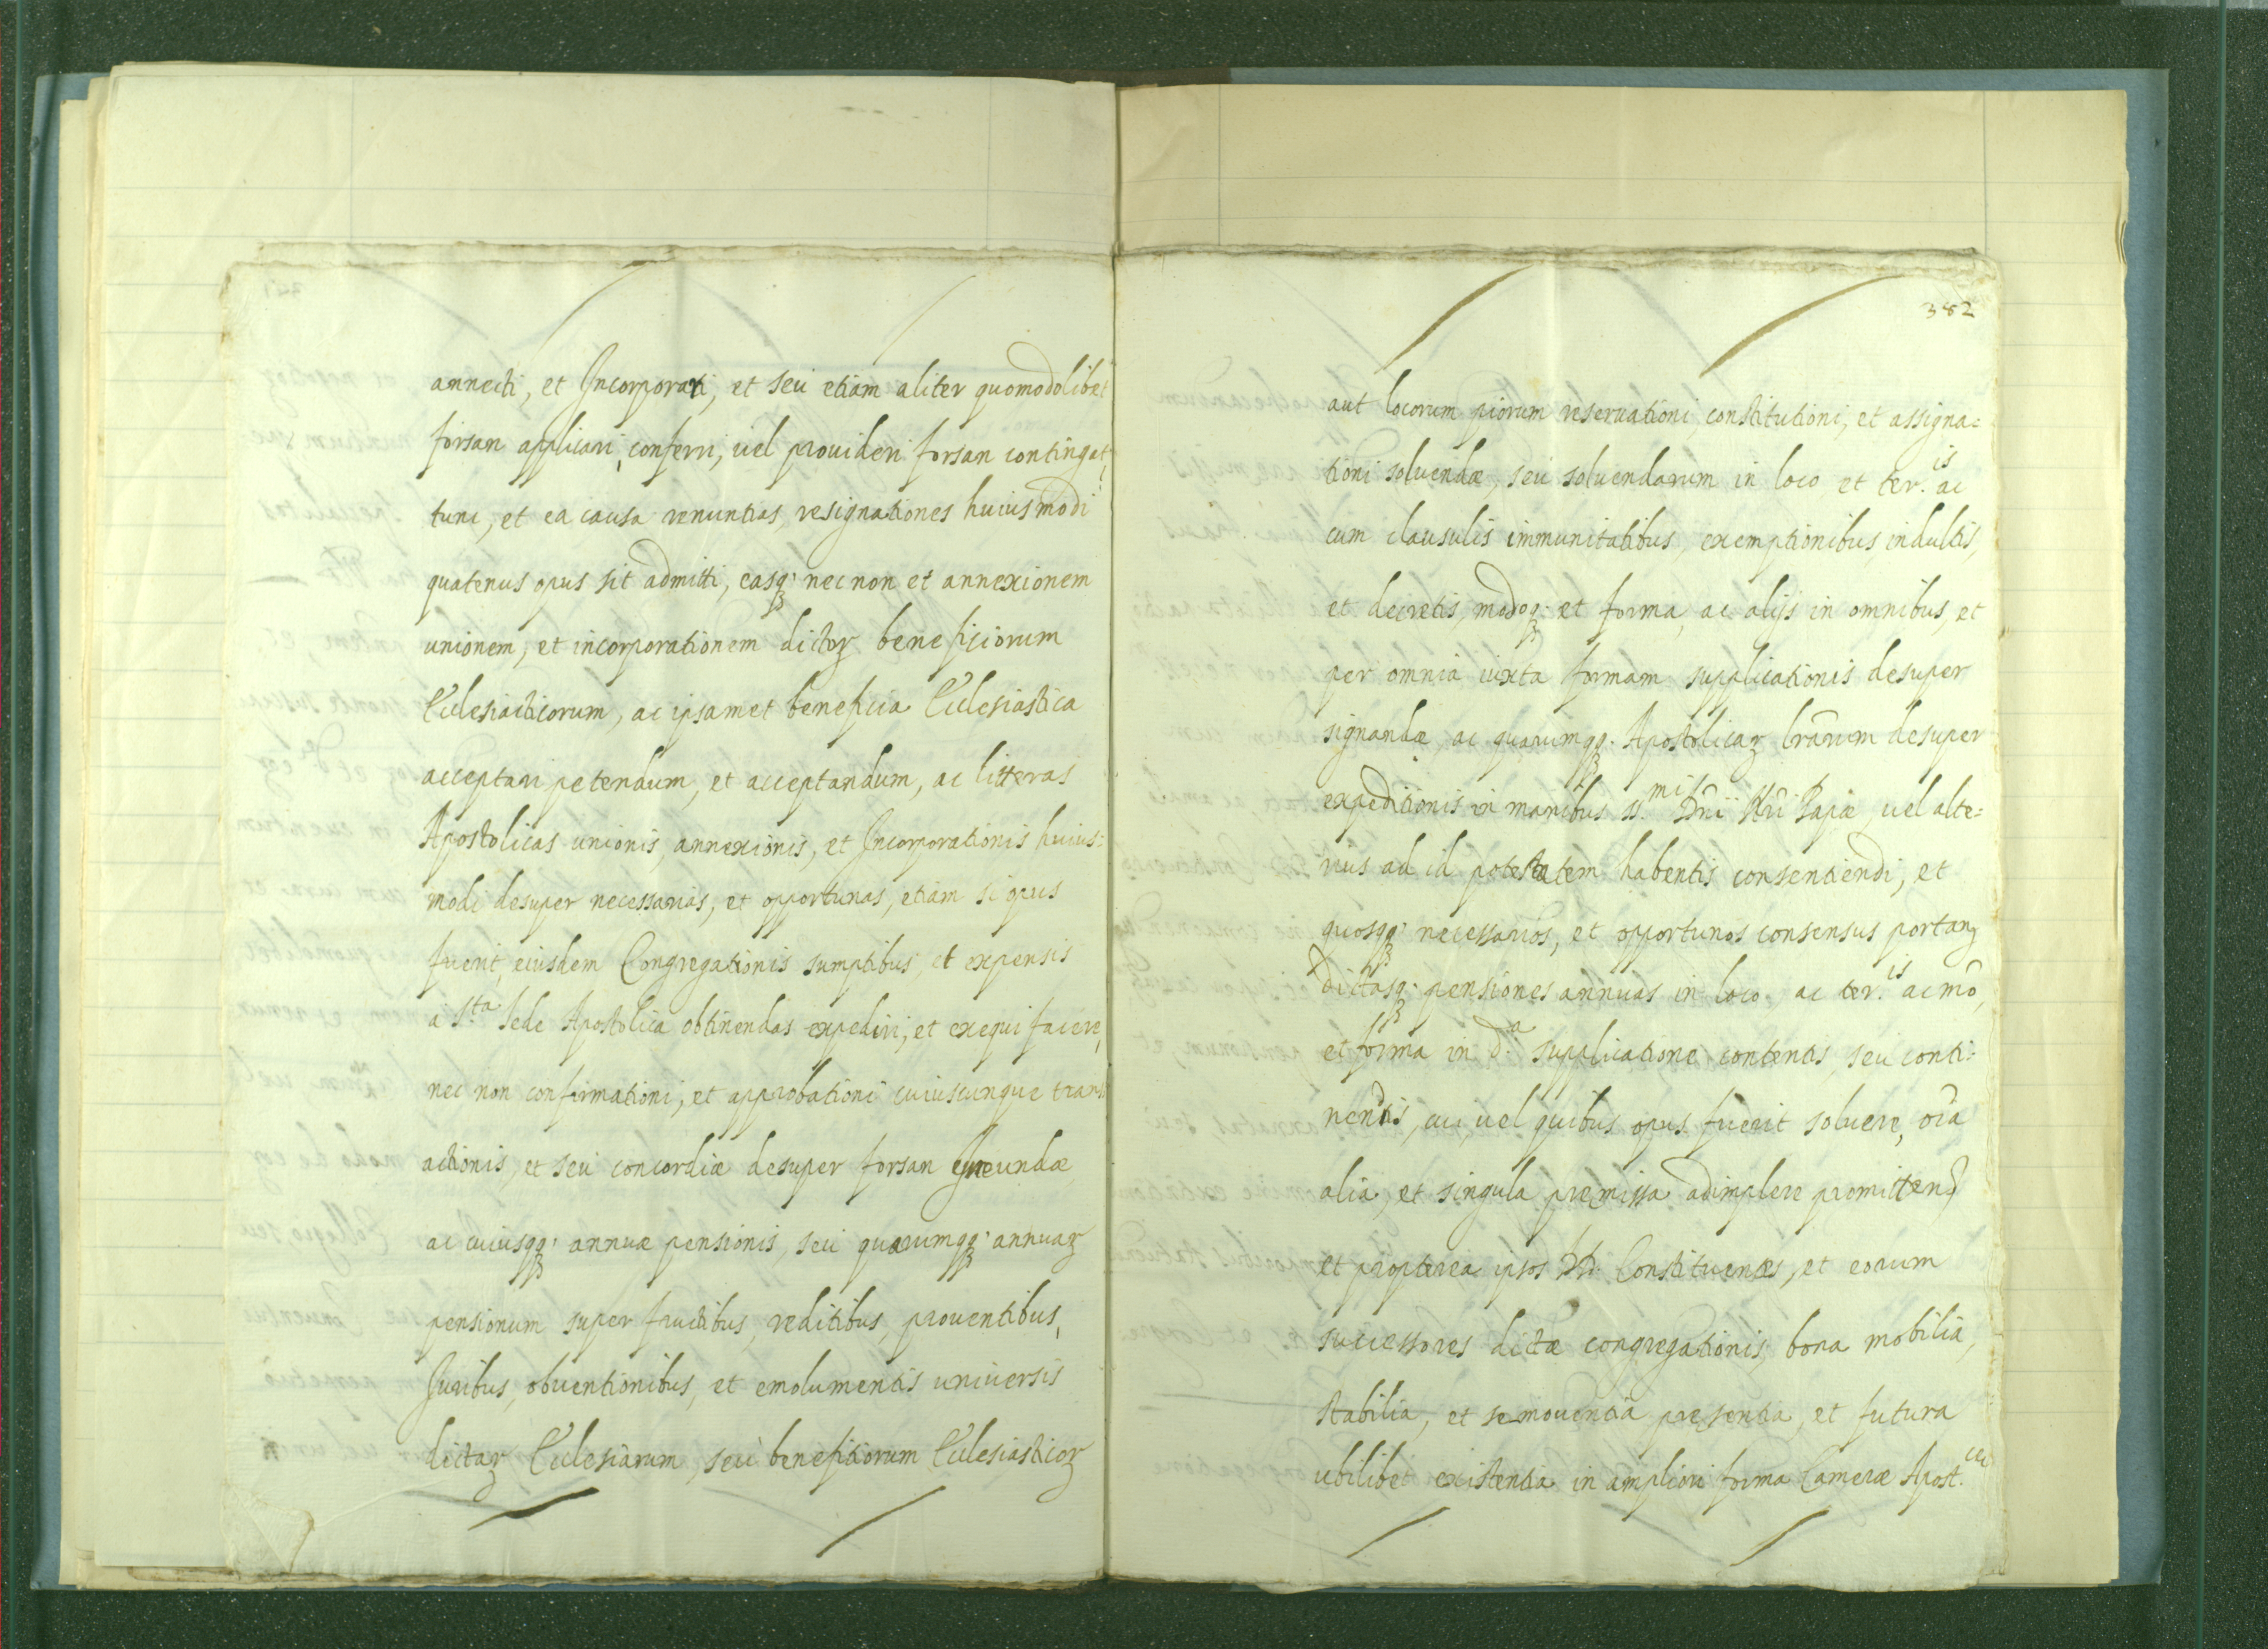 annecti, et Incorporati, et seu etiam aliter quomodolibet
forsan applicari, conferri, uel prouideri forsan contingat,
tunc, et ea causa renuntias, resignationes huiusmodi
quatenus opus sit admitti, easq; nec non et annexionem
unionem, et incorporationem dictoꝝ beneficiorum
Ecclesiasticorum, ac ipsamet beneficia Ecclesiastica
acceptari petendum, et acceptandum, ac litteras
Apostolicas unionis, annexionis, et Incorporationis huius:
modi desuper necessarias, et opportunas, etiam si opus
fuerit, eiusdem Congregationis sumptibus, et expensis
à S.ta Sede Apostolica obtinendas expediri, et exequi facere,
nec non confirmationi, et approbationi cuiuscunque trans
actionis, et seu concordiæ desuper forsan Ineundæ
ac cuiusqq; annuæ pensionis, seu quarumqq; annuaꝝ
pensionum super fructibus, reditibus, prouentibus,
Juribus, obuentionibus, et emolumentis uniuersis
dictaꝝ Ecclesiarum, seu benefitiorum Ecclesiasticoꝝ
382
aut locorum piorum reseruationi, constitutioni, et assigna:
tioni soluendæ, seu soluendarum in loco et ter.is ac
cum clausulis immunitatibus, exemptionibus, indultis,
et decretis, modoq; et forma, ac alijs in omnibus, et
per omnia iuxta formam supplicationis desuper
signandæ, ac quarumqq; Apostolicaꝝ lr̃arum desuper
expeditionis in manibus SS.mi Dñi Ñri Papæ, uel alte:
rius ad id potestatem habentis consentiendi, et
quosqq; necessarios, et opportunos consensus portanꝫ
dictasq; pensiones annuas in loco, ac ter.is ac mõ,
et forma in d.a supplicatione contentis, seu conti:
nendis, cui, uel quibus opus fuerit soluere, oĩa
alia, et singula premissa adimplere promittenꝫ
et propterea ipsos DD. Constituentes, et eorum
successores dictæ congregationis, bona mobilia,
stabilia, et semouentia presentia, et futura
ubilibet existentia in ampliori forma Cameræ Apost.cæ